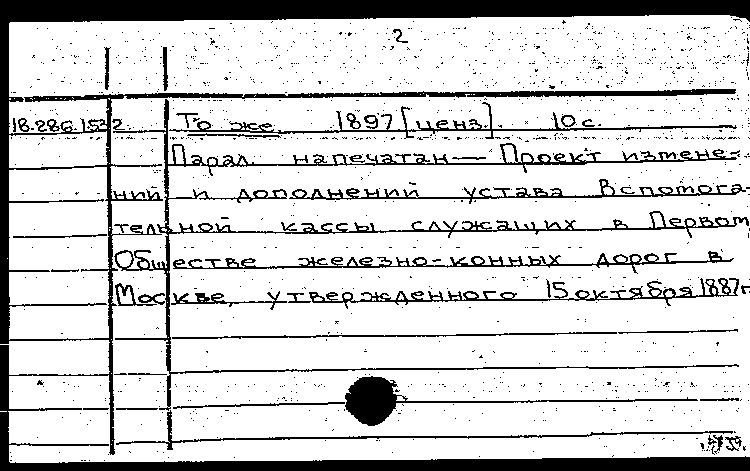 2
18.286.1532 То же 1897 [ценз.] 10 с.
Парал. напечатан — Проект измене-
ний и дополнений устава Вспомога-
тельной кассы служащих в Первом
Обществе железно-конных дорог в
Москве, утвержденного 15 октября 1887 г.